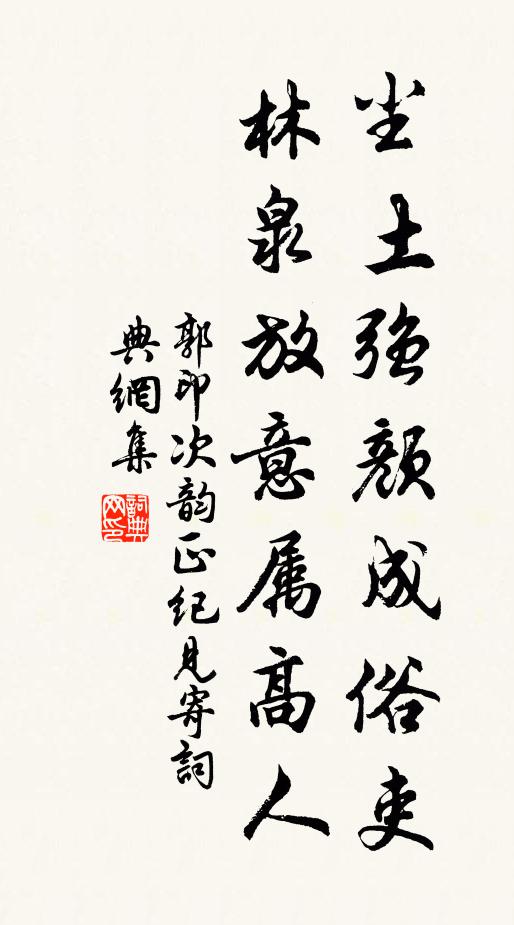 尘土强颜成俗吏
林泉放意属高人
郭印次韵正纪见寄詞
典網集
詞典网印